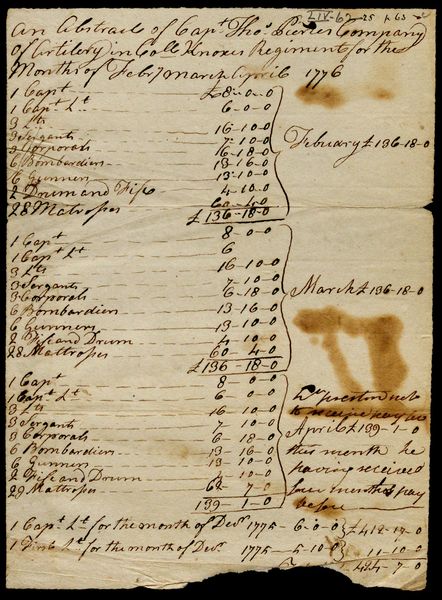 LIV-62
An Abstract of Capt. Thos. Pierces Company
of Artilery in Coll Knoxes Regiment for the
Months of Febry march April 1776
1 Capt £8-0-0
1 Capt Lt 6-0-0
3 Lts 16-10-0
3 Sergants 7-10-0
3 Corporals 6-18-0
6 Bombardiers 13-16-0
6 Gunners 13-10-0
2 Drum and Fife 4-10-0
28 Matrosses 60-4-0
£136-18-0
Febuary £136-18-0
1 Capt 8-0-0
1 Capt Lt 6
3 Lts 16-10-0
3 Sergants 7-10-0
3 Corporals 6-18-0
6 Bombardiers 13-16-0
6 Gunners 13-10-0
2 Fife and Drum 4-10-0
28 Mattrosses 60-4-0
£136-18-0
March £136-18-0
1 Capt 8-0-0
1 Capt Lt 6-0-0
3 Lts 16-10-0
3 Sergants 7-10-0
3 Corporals 6-18-0
6 Bombardiers 13-16-0
6 Gunners 13-10-0
2 Fife and Drum 4-10-0
29 Mattrosses 62-7-0
139-1-0
Lt preston not
to receive pay for
April £139-1-0
this month he
having received
four months pay
before
1 Capt Lt for the month of Decr 1775-6-0-0 £412-17-0
1 First Lt for the month of Decr 1775-5-10-0 11-10-0
424-7-0